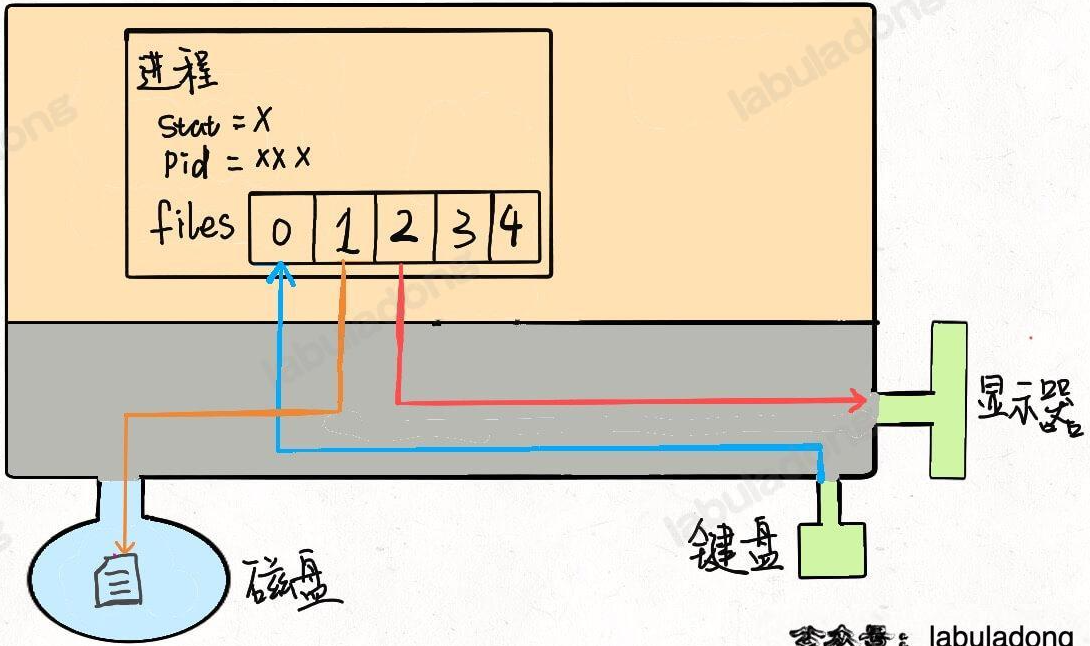 进程
Stat = X
Pid = XXX
files 0 1 2 3 4
显示器
键盘
磁盘
公众号：labuladong
labuladong
labuladong
labuladong
ong